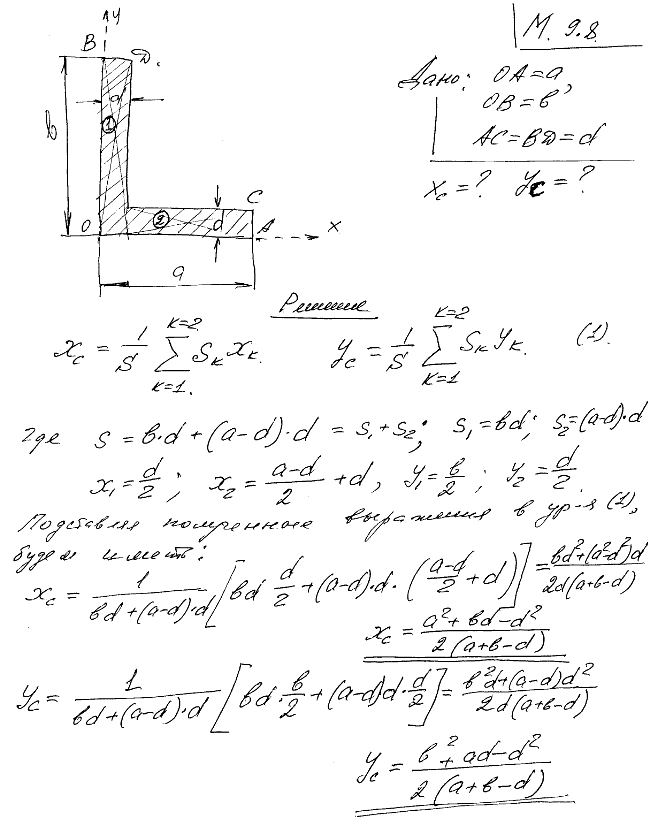 М. 9.8.
y
B
D.
Дано: OA=a,
OB=в,
AC=BD=d
d
1
в
xc=? yc=?
C
O
2
d
A
x
a
Решение
xc = 1/S ∑(k=1, k=2) Sk xk. yc = 1/S ∑(k=1, k=2) Sk yk. (1).
Где S = в·d + (a-d)·d = S1+S2; S1=вd; S2=(a-d)·d
x1 = d/2; x2 = (a-d)/2 + d, y1 = в/2; y2 = d/2.
Подставляя полученные выражения в ур-я (1),
будем иметь:
xc = 1/(вd+(a-d)·d) [вd·d/2 + (a-d)·d·((a-d)/2 + d)] = (вd²+(a²-d²)d)/(2d(a+в-d))
xc = (a²+вd-d²)/(2(a+в-d))
yc = 1/(вd+(a-d)·d) [вd·в/2 + (a-d)d·d/2] = (в²d+(a-d)d²)/(2d(a+в-d))
yc = (в²+ad-d²)/(2(a+в-d))